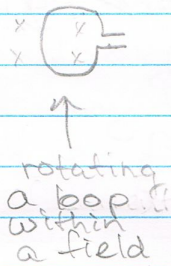 x x
x x
rotating
a loop
within
a field